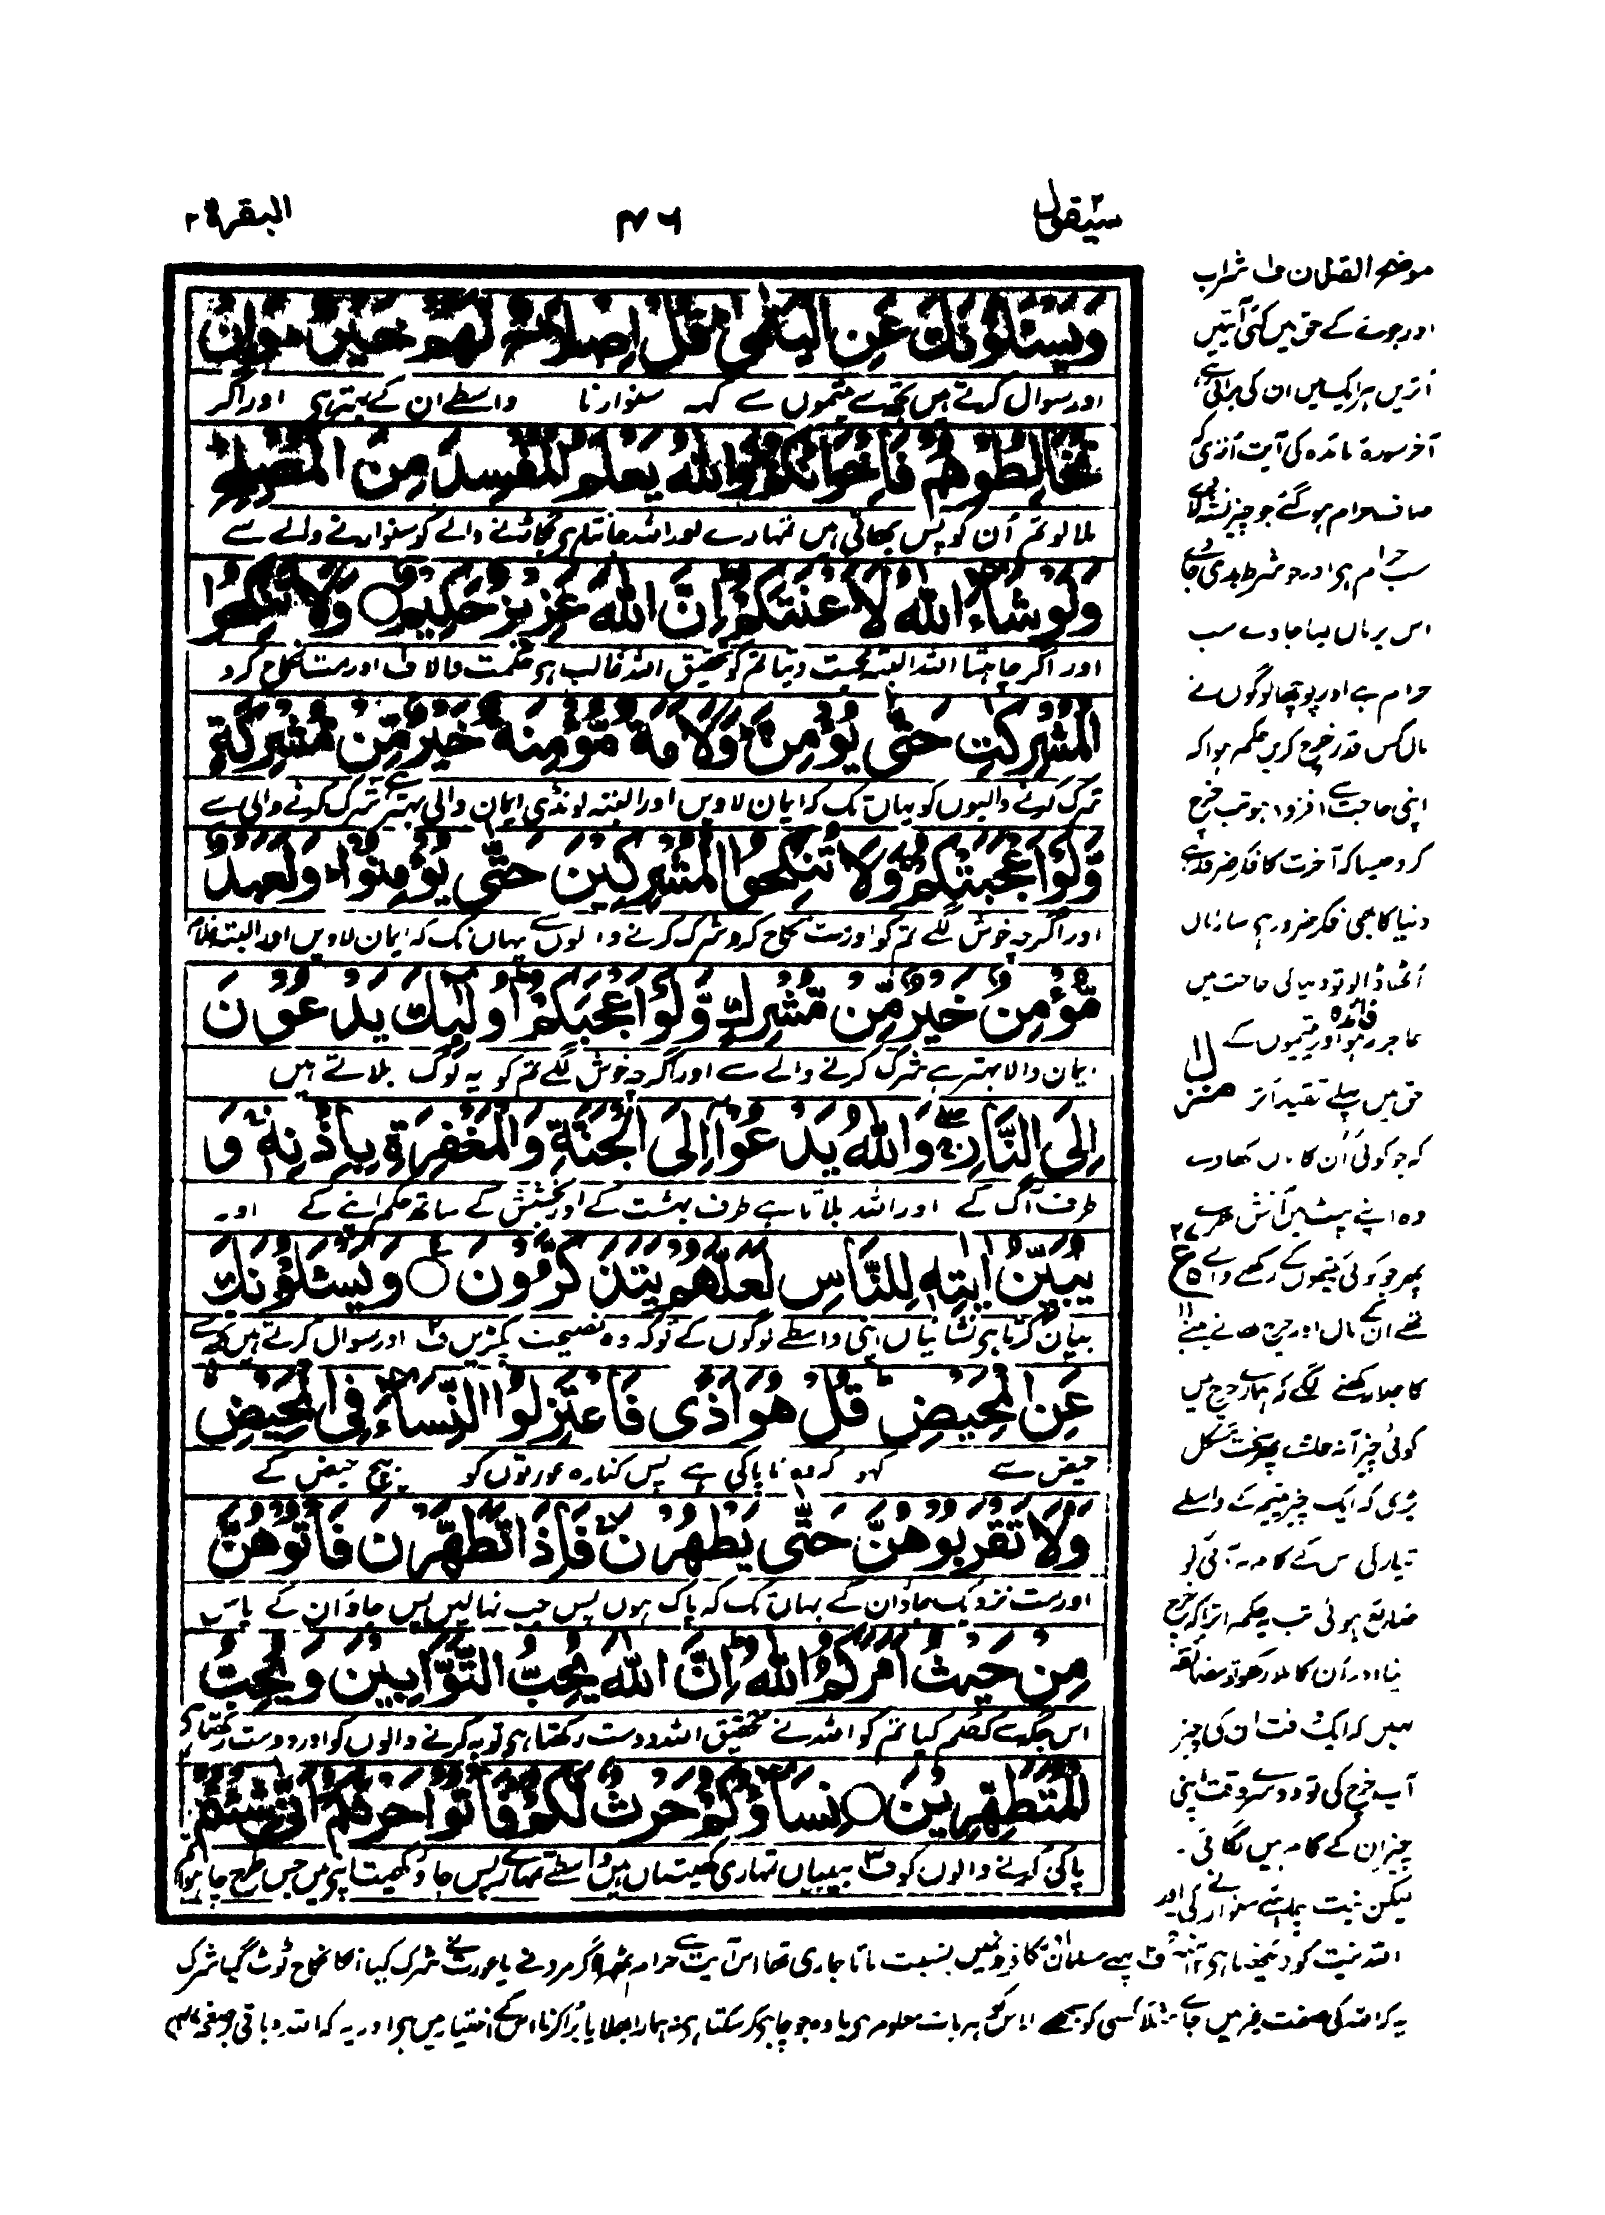 سیقول ۲
۴۶
البقرۃ ۲
وَيَسْـَٔلُوْنَكَ عَنِ الْيَتٰمٰى ؕ قُلْ اِصْلَاحٌ لَّهُمْ خَيْرٌ ؕ وَاِنْ
اور سوال کرتے ہیں تجھ سے یتیموں سے کہہ سنوارنا واسطے ان کے بہتر ہی اور اگر
تُخَالِطُوْهُمْ فَاِخْوَانُكُمْ ؕ وَاللّٰهُ يَعْلَمُ الْمُفْسِدَ مِنَ الْمُصْلِحِ ؕ
ملا لو تم اُن کو پس بھائی ہیں تمہارے اور اللہ جانتا ہی بگاڑنے والے کو سنوارنے والے سے
وَلَوْ شَآءَ اللّٰهُ لَاَعْنَتَكُمْ ؕ اِنَّ اللّٰهَ عَزِيْزٌ حَكِيْمٌ ○ وَلَا تَنْكِحُوا
اور اگر چاہتا اللہ البتہ محنت دیتا تم کو تحقیق اللہ غالب ہی حکمت والا ف اور مت نکاح کرو
الْمُشْرِكٰتِ حَتّٰى يُؤْمِنَّ ؕ وَلَاَمَةٌ مُّؤْمِنَةٌ خَيْرٌ مِّنْ مُّشْرِكَةٍ
شرک کرنے والیوں کو یہاں تک کہ ایمان لاویں اور البتہ لونڈی ایمان والی بہتر ہے شرک کرنے والی سے
وَّلَوْ اَعْجَبَتْكُمْ ۚ وَلَا تُنْكِحُوا الْمُشْرِكِيْنَ حَتّٰى يُؤْمِنُوْا ؕ وَلَعَبْدٌ
اور اگرچہ خوش لگے تم کو اور مت نکاح کرو شرک کرنے والوں سے یہاں تک کہ ایمان لاویں اور البتہ غلام
مُّؤْمِنٌ خَيْرٌ مِّنْ مُّشْرِكٍ وَّلَوْ اَعْجَبَكُمْ ؕ اُولٰٓئِكَ يَدْعُوْنَ
ایمان والا بہتر ہے شرک کرنے والے سے اور اگرچہ خوش لگے تم کو یہ لوگ بلاتے ہیں
اِلَى النَّارِ ۖۚ وَاللّٰهُ يَدْعُوْٓا اِلَى الْجَنَّةِ وَالْمَغْفِرَةِ بِاِذْنِهٖ ۚ وَ
طرف آگ کے اور اللہ بلاتا ہے طرف بہشت کے اور بخشش کے ساتھ حکم اپنے کے اور
يُبَيِّنُ اٰيٰتِهٖ لِلنَّاسِ لَعَلَّهُمْ يَتَذَكَّرُوْنَ ○ وَيَسْـَٔلُوْنَكَ
بیان کرتا ہی نشانیاں اپنی واسطے لوگوں کے توکہ وہ نصیحت پکڑیں ف۲ اور سوال کرتے ہیں تجھ سے
عَنِ الْمَحِيْضِ ؕ قُلْ هُوَ اَذًى فَاعْتَزِلُوا النِّسَآءَ فِى الْمَحِيْضِ
حیض سے کہو کہ وہ ناپاکی ہے پس کنارہ عورتوں کو بیچ حیض کے
وَلَا تَقْرَبُوْهُنَّ حَتّٰى يَطْهُرْنَ ۚ فَاِذَا تَطَهَّرْنَ فَاْتُوْهُنَّ
اور مت نزدیک جاؤ ان کے یہاں تک کہ پاک ہوں پس جب نہا لیں پس جاؤ ان کے پاس
مِنْ حَيْثُ اَمَرَكُمُ اللّٰهُ ؕ اِنَّ اللّٰهَ يُحِبُّ التَّوَّابِيْنَ وَيُحِبُّ
اس جگہ سے کہ حکم کیا تم کو اللہ نے تحقیق اللہ دوست رکھتا ہی توبہ کرنے والوں کو اور دوست رکھتا ہی
الْمُتَطَهِّرِيْنَ ○ نِسَآؤُكُمْ حَرْثٌ لَّكُمْ ۪ فَاْتُوْا حَرْثَكُمْ اَنّٰى شِئْتُمْ
پاکی کرنے والوں کو ف۳ بیبیاں تمہاری کھیتیاں ہیں واسطے تمہارے پس جاؤ کھیت اپنی میں جس طرح چاہو تم
موضح القرآن ف شراب
اور جوے کے حق میں کئی آیتیں
اُتریں ہر ایک میں ان کی برائی ہے
آخر سورۃ مائدہ کی آیت اُتری کہ
صاف حرام ہو گئے جو چیز نشہ لاوے
سب حرام ہی اور جو شرط بدی جاوے
اس پر مال لیا جاوے سب
حرام ہے اور پوچھا لوگوں نے
مال کس قدر خرچ کریں حکم ہوا کہ
اپنی حاجت سے افزود ہو تب خرچ
کرو جیسا کہ آخرت کا فکر ضرور ہے
دنیا کا بھی فکر ضرور ہی سارا مال
اُٹھا ڈالو تو دنیا کی حاجت میں
عاجز رہو فائدہ اور یتیموں کے
منزل ۱
حق میں پہلے تقید اُترا
کہ جو کوئی اُن کا مال کھاوے
وہ اپنے پیٹ میں آتش بھرے
پھر جو کوئی یتیموں کے رکھنے والے
تھے ان کے مال اور خرچ کھانے پینے
کا جدا رکھنے لگے کہ ہمارے خرچ میں
کوئی چیز آنہ جاوے پھر سخت مشکل
پڑی کہ ایک چیز یتیم کے واسطے
تیار کی اس کے کام نہ آئی تو
ضایع ہوئی تب یہ حکم اترا کہ خرچ
اپنا اور اُن کا ملا رکھو تو مضائقہ
نہیں کہ ایک وقت ان کی چیز
آپ خرچ کی تو دوسرے وقت اپنی
چیز ان کے کام میں لگائی۔
لیکن نیت چاہئے سنوارنے کی اور
اللہ نیت کو دیکھتا ہی